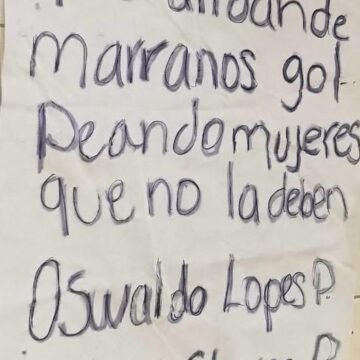 marranos gol-
peando mujeres
que no la deben
Oswaldo Lopes P.